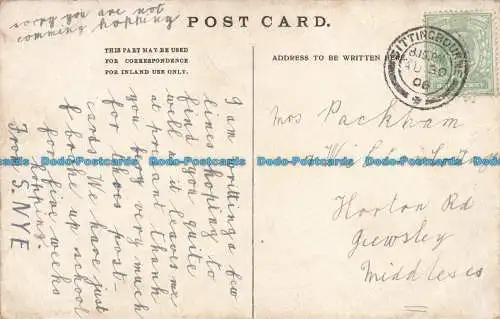 sorry you are not
comming hopping
POST CARD.
THIS PART MAY BE USED
FOR CORRESPONDENCE
FOR INLAND USE ONLY.
ADDRESS TO BE WRITTEN HERE.
SITTINGBOURNE
8.15 PM
AU 30
06
I am writting a few
lines hoping to
find you quite
well as it leaves me
at present thank
you very much
for post-
cards. We have just
broke up school
for five weeks
hopping.
From S. NYE
Mrs Packham
Horton Rd
Yiewsley
Middlesex
Dodo-Postcards.com Dodo-Postcards.com Dodo-Postcards.com